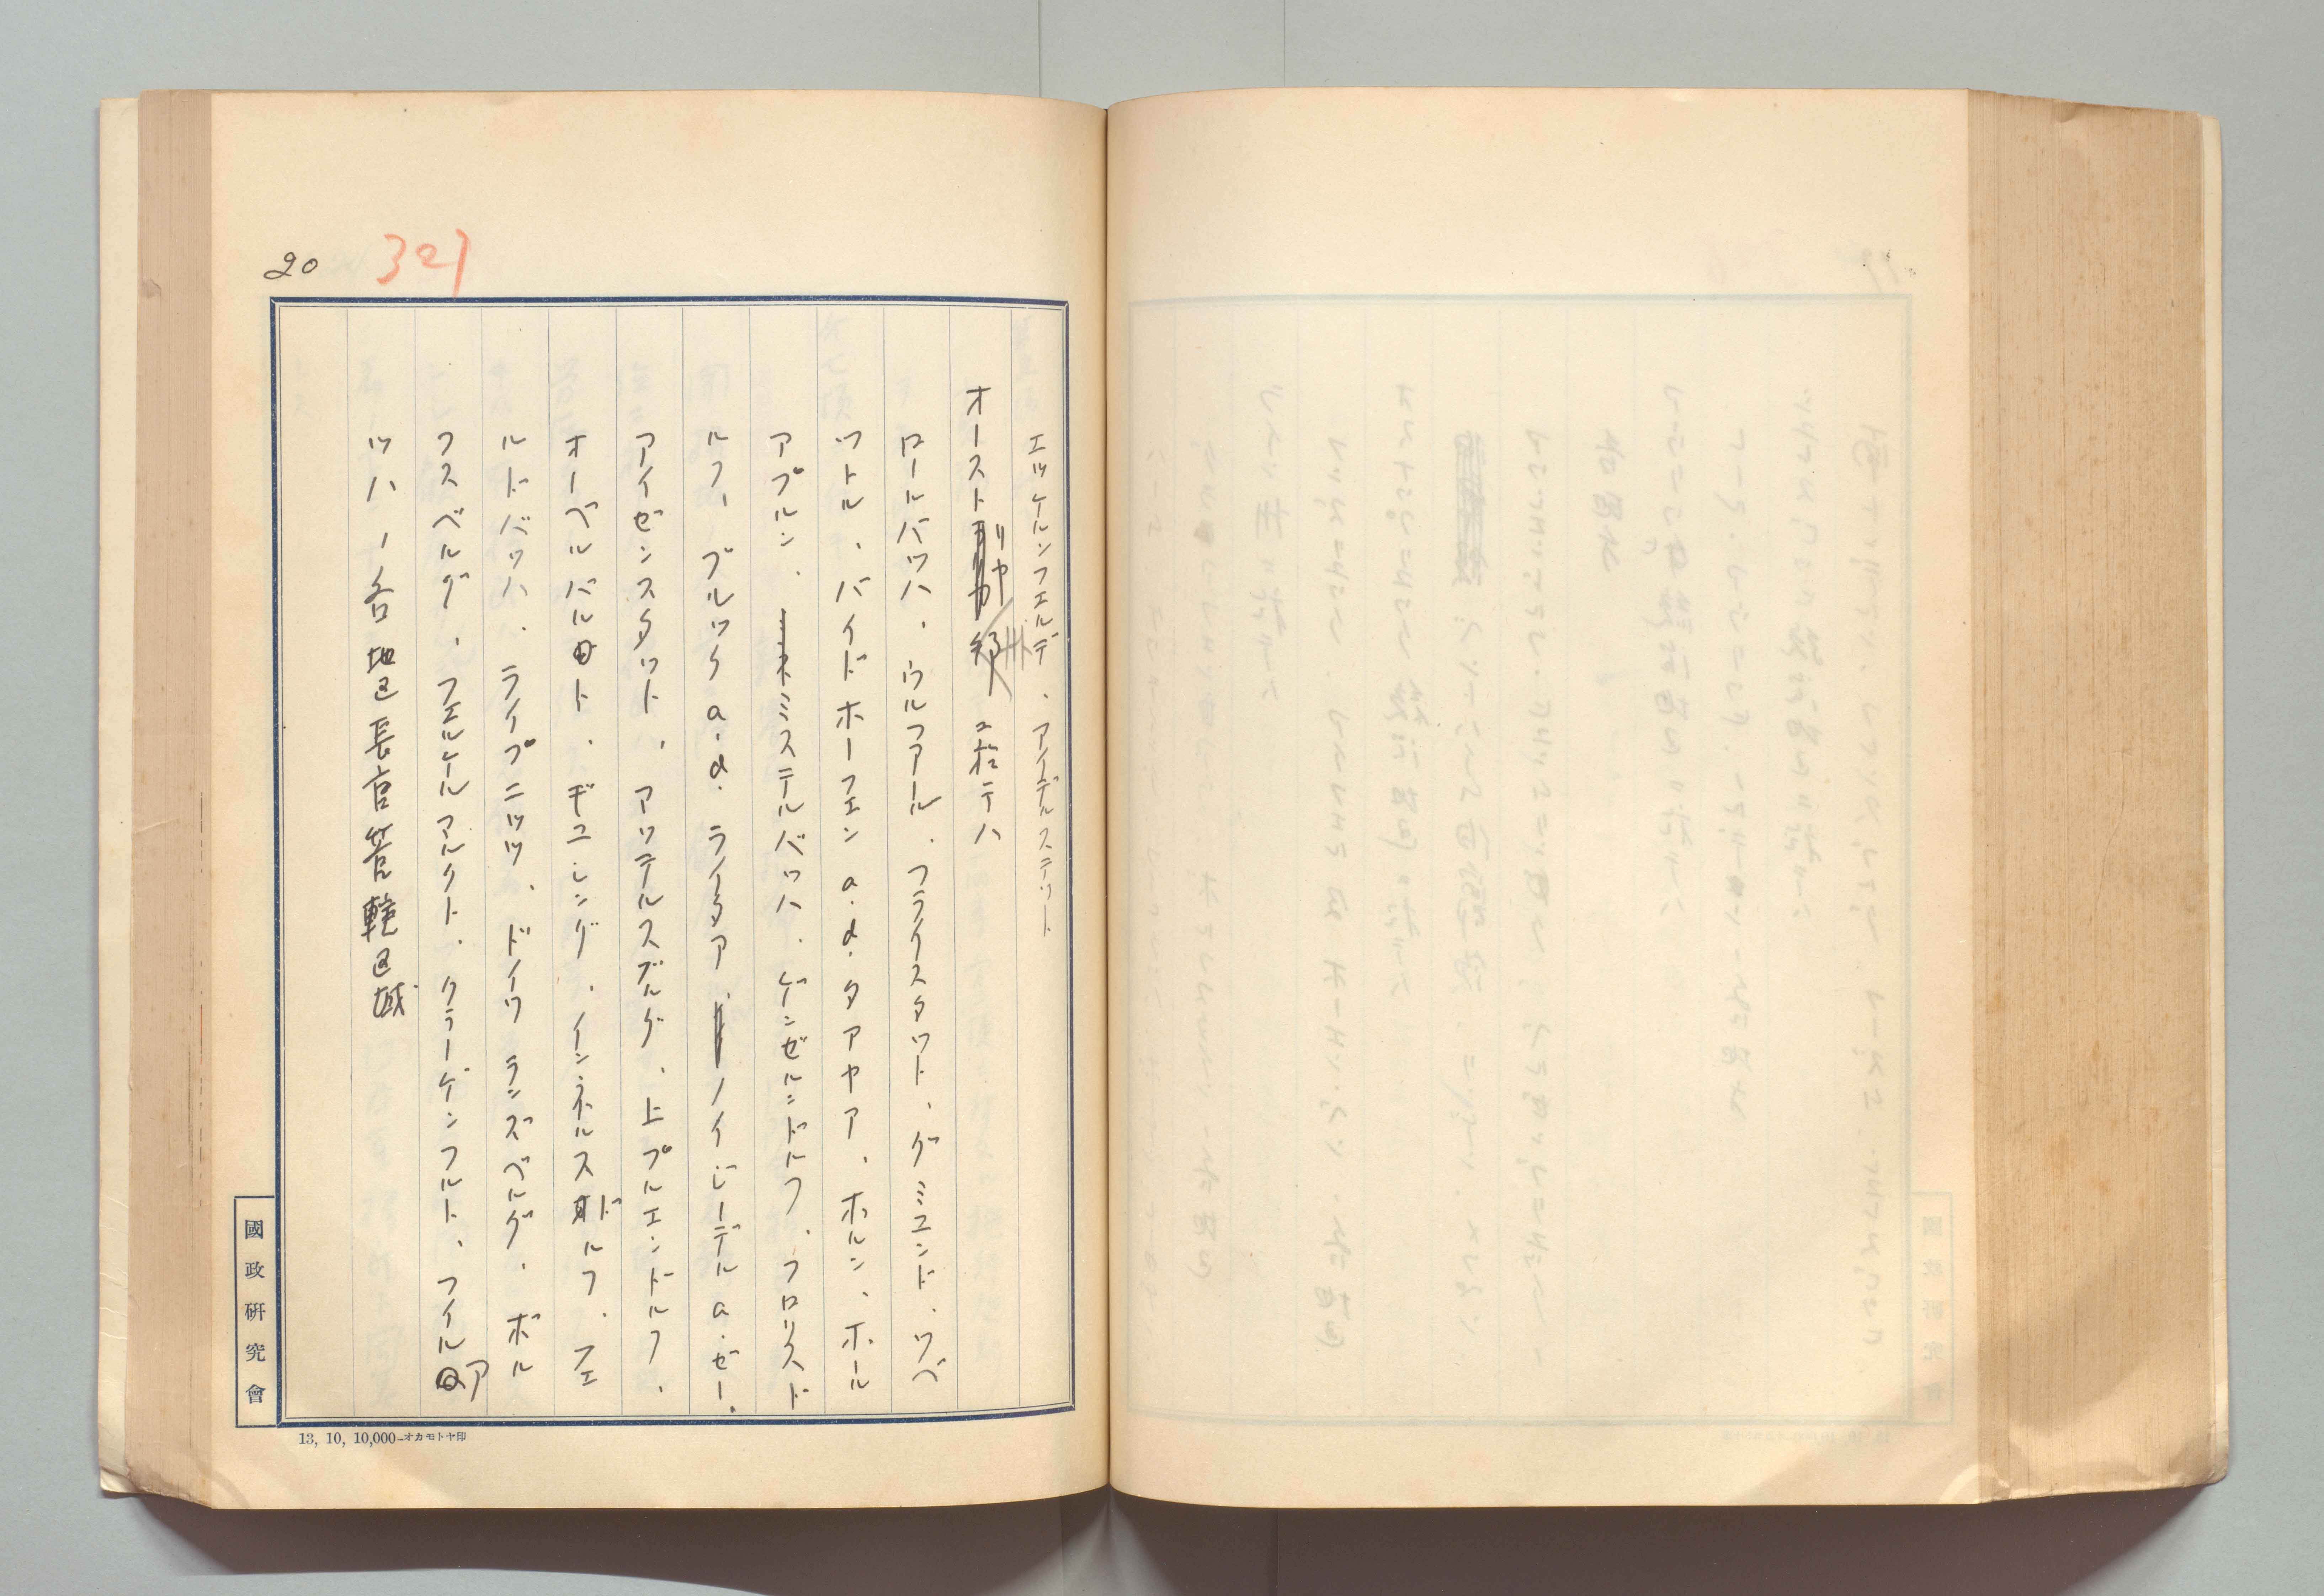 20
321
エツケルンフエルデ、アイデルステツト
オーストリヤ州ニ於テハ
ロールバツハ、ウルフアール、フライスタツト、グミユンド、ツベ
ツトル、バイドホーフエン a.d.タアヤア、ホルン、ホール
アプルン、ミステルバツハ、ゲンゼルンドルフ、フロリスド
ルフ、ブルツク a.d.ライタア、ノイジーデル a.ゼー、
アイゼンスタツト、アツテルスブルグ、上プルエンドルフ、
オーベルバルト、ギユシング、インネルスドルフ、フエ
ルドバツハ、ライプニツツ、ドイツランズベルグ、ボル
フスベルグ、フエルケルマルクト、クラーゲンフルト、フイルア
ツハ、ノ各地区長官管轄区域
國政硏究會
13, 10, 10,000—オカモトヤ印